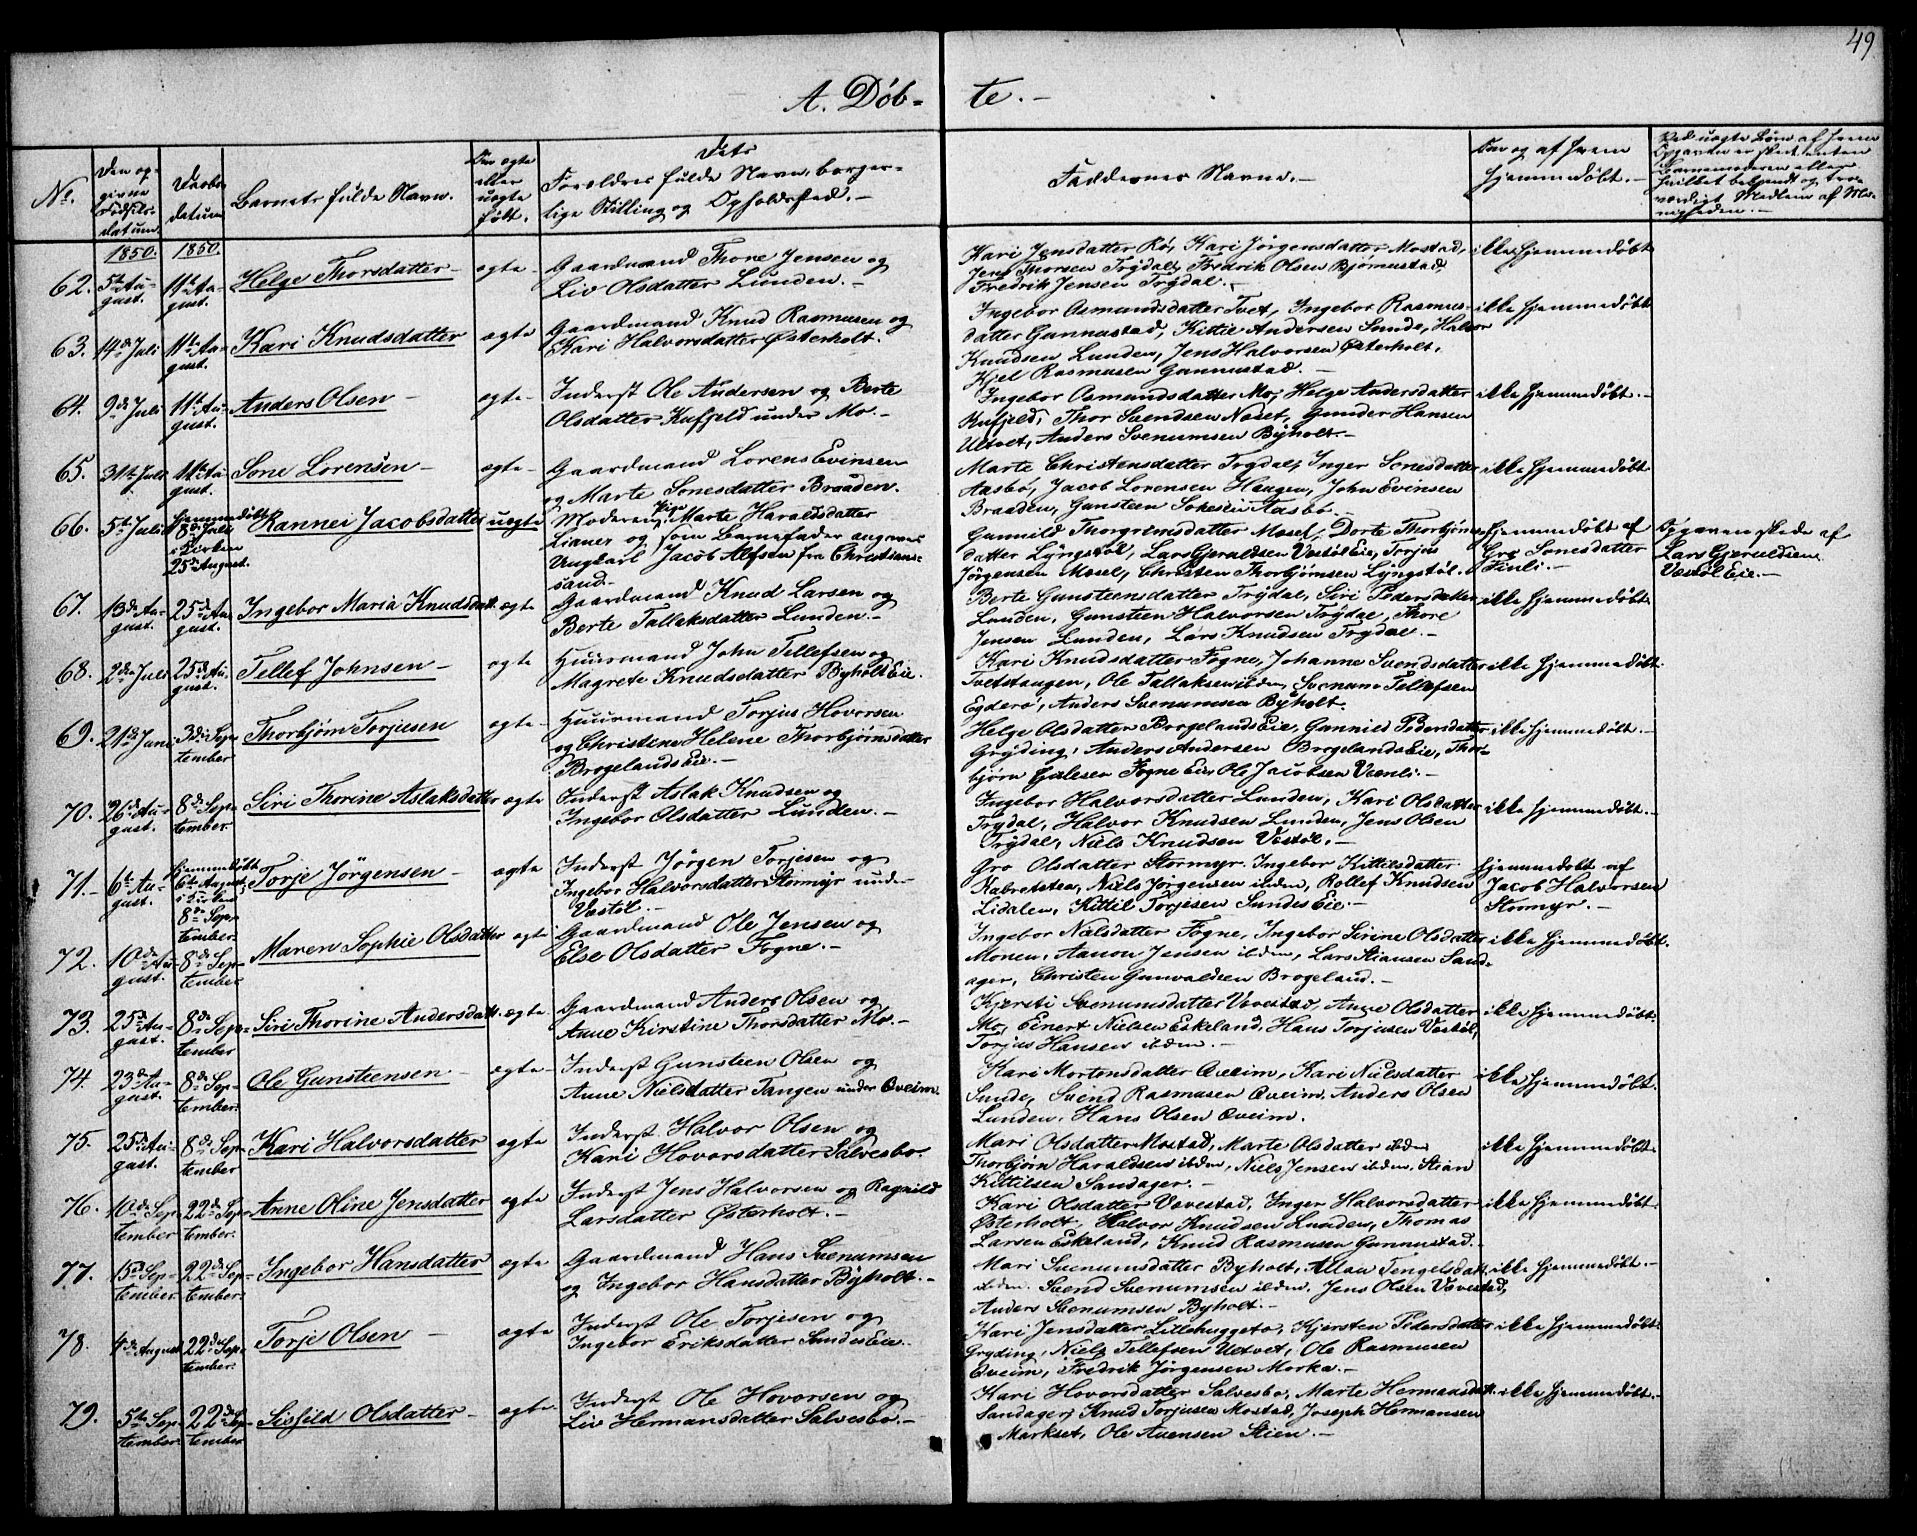 49
A. Døb- te.-
No.
Den op-
givne
Fødsels-
datum.
Daabs-
datum
Barnets fulde Navn.
Om ægte
eller
uægte
født.
Dets
Forældres fulde Navn, borger-
lige Stilling og Opholdssted.-
Faddernes Navne.-
Om og af hvem
hjemmedøbt.-
Ved uægte Børn af hvem
Opgaven er skeet, enten
Barnemoderen eller
hvilket bekjendt og tro-
værdigt Medlem af Me-
nigheden.-
1850. 1850.
62. 5te Au-
gust.
11te Au-
gust.
Helge Thorsdatter-
ægte-
Gaardmand Thore Jensen og
Liv Olsdatter Lunden.-
Kari Jensdatter Rø, Kari Jørgensdatter Mostad,
Jens Thorsen Trydal, Fredrik Olsen Bjørnustad,
Fredrik Jensen Trydal.-
ikke hjemmedøbt
63. 14de Juli
11te Au-
gust.
Kari Knudsdatter
ægte
Gaardmand Knud Rasmusen og
Kari Halvorsdatter Østerholt.
Ingebor Osmundsdatter Tvet, Ingebor Rasmus-
datter Gunnustad, Kittil Andersen Sunde, Halvor
Knudsen Lunden, Jens Halvorsen Østerholt,
Kjel Rasmusen Gunnustad.-
ikke hjemmedøbt
64. 9de Juli
11te Au-
gust.
Anders Olsen-
ægte-
Inderst Ole Andersen og Berte
Olsdatter Kufjeld under Mo.-
Ingebor Osmundsdatter Mo, Helge Andersdatter
Kufjeld, Thor Svendsen Næset, Gunder Hansen
Uetvet, Anders Svenumsen Byholt.-
ikke hjemmedøbt.-
65. 31te Juli
11te Au-
gust.
Sone Lorensen-
ægte-
Gaardmand Lorens Evinsen
og Marte Sonesdatter Braaden.
Marte Christensdatter Trydal, Inger Sonesdatter
Aasbø, Jacob Lorensen Haugen, John Evinsen
Braaden, Gunsteen Sonesen Aasbø.-
ikke hjemmedøbt
66. 5te Juli
hjemmedøbt
8de Juli
i Kirken
25de August.
Rannei Jacobsdatter
uægte
Moderen Pige Marte Haraldsdatter
Lianes og som Barnefader angives
Ungkarl Jacob Alfsen fra Christian-
sand.-
Gunnild Thorgrimsdatter Mosel, Dorte Thorbjørns-
datter Lyngstøl, Lars Gjeruldsen Vestøl Eie, Torjus
Jørgensen Mosel, Christen Thorbjørnsen Lyngstøl.
hjemmedøbt af
Gro Sonesdatter
Finli.-
Opgaven skede af
Lars Gjeruldsen
Vestøl Eie.-
67. 13de Au-
gust.
25de Au-
gust.
Ingebor Maria Knudsdatt.
ægte
Gaardmand Knud Larsen og
Berte Tallaksdatter Lunden.-
Berte Gunsteensdatter Trydal, Siri Pedersdatter
Lunden, Gunsteen Halvorsen Trydal, Thore
Jensen Lunden, Lars Knudsen Trydal.-
ikke hjemmedøbt
68. 2de Juli
25de Au-
gust.
Tellef Johnsen-
ægte
Huusmand John Tellefsen og
Magrete Knudsdatter Byholt Eie.
Kari Knudsdatter Fogne, Johanne Svendsdatter
Tvetstangen, Ole Tallaksen ibden, Svenum Tellefsen
Egderø, Anders Svenumsen Byholt.-
ikke hjemmedøbt.
69. 21de Juni
3de Sep-
tember
Thorbjørn Torjesen
ægte-
Huusmand Torjus Hovorsen
og Christine Helene Thorbjørnsdatter
Brøgelands Eie.-
Helge Olsdatter Brøgelands Eie, Gunnild Pedersdatter
Gryding, Anders Andersen Brøgelands Eie, Thor-
bjørn Fogne Eie, Ole Jacobsen Vienli.-
ikke hjemmedøbt.-
70. 26de Au-
gust.
8de Sep-
tember.
Siri Thorine Aslaksdatter
ægte
Inderst Aslak Knudsen og
Ingebor Olsdatter Lunden.-
Ingebor Halvorsdatter Lunden, Kari Olsdatter
Trydal, Halvor Knudsen Lunden, Jens Olsen
Trydal, Niels Knudsen Vestøl.-
ikke hjemmedøbt.-
71.- 6te Au-
gust.
hjemmedøbt
6te August,
i Kirken
8de Sep-
tember.
Torje Jørgensen-
ægte
Inderst Jørgen Torjesen og
Ingebor Halvorsdatter Stormyr under
Vestøl.-
Gro Olsdatter Stormyr, Ingebor Kittilsdatter
Rabretsten, Niels Jørgensen ibden, Rollef Knudsen
Lidalen, Kittil Torjesen Sundes Eie.-
hjemmedøbt af
Jacob Halvorsen
Stormyr.-
72. 10de Au-
gust.
8de Sep-
tember.
Maren Sophie Olsdatter
ægte
Gaardmand Ole Jensen og
Else Olsdatter Fogne.-
Ingebor Nielsdatter Fogne, Ingebor Sirine Olsdatter
Monen, Aanon Jensen ibden, Lars Stiansen Sand-
ager, Christen Gunvaldsen Brøgeland.-
ikke hjemmedøbt.
73. 25de Au-
gust.
8de Sep-
tember
Siri Thorine Andersdatt.
ægte.
Gaardmand Anders Olsen og
Anne Kirstine Thorsdatter Mo.-
Kjersti Svenumsdatter Vevestad, Anne Olsdatter
Mo, Einert Nielsen Eskeland, Hans Torjusen Vestøl,
Torjus Hansen ibden.-
ikke hjemmedøbt.
74. 23de Au-
gust.
8de Sep-
tember.
Ole Gunsteensen-
ægte-
Inderst Gunsteen Olsen og
Anne Nielsdatter Tangen under Øveim.
Kari Mortensdatter Øveim, Kari Nielsdatter
Sunde, Svend Rasmusen Øveim, Anders Olsen
Lunden, Hans Olsen Øveim.
ikke hjemmedøbt.
75. 25de Au-
gust.
8de Sep-
tember
Kari Halvorsdatter
ægte
Inderst Halvor Olsen og
Kari Hovorsdatter Salvesbø.
Mari Olsdatter Mostad, Marte Olsdatter ibden
Thorbjørn Haraldsen ibden, Niels Jensen ibden, Stian
Kittilsen Sandager.-
ikke hjemmedøbt.
76. 10de Sep-
tember
22de Sep-
tember.
Anne Oline Jensdatter
ægte
Inderst Jens Halvorsen og Ragnild
Larsdatter Østerholt.-
Kari Olsdatter Vevestad, Inger Halvorsdatter
Østerholt, Halvor Knudsen Lunden, Thomas
Larsen Eskeland, Knud Rasmusen Gunnustad.-
ikke hjemmedøbt.
77. 15de Sep-
tember
22de Sep-
tember.
Ingebor Hansdatter
ægte
Gaardmand Hans Svenumsen
og Ingebor Hansdatter Byholt.-
Mari Svenumsdatter Byholt, Tengelsdatt.
ibden, Svend Svenumsen ibden, Jens Olsen Vevestad,
Anders Svenumsen Byholt.-
ikke hjemmedøbt.-
78. 4de August
22de Sep-
tember.
Torje Olsen-
ægte
Inderst Ole Torjesen og
Ingebor Eriksdatter Sundes Eie.
Kari Jensdatter Lillehuggeto, Kjersten Pedersdatter
Gryding, Niels Tellefsen Uetvet, Ole Rasmusen
Øveim, Fredrik Jørgensen Morka.-
ikke hjemmedøbt.
79. 5te Sep-
tember
22de Sep-
tember
Sisfild Olsdatter-
ægte-
Inderst Ole Hovorsen og
Liv Hermansdatter Salvesbø.-
Kari Hovorsdatter Salvesbø, Marte Hermansdatt.
Sandager, Knud Torjusen Mostad, Joseph Hermansen
Markset, Ole Avensen Stien.-
ikke hjemmedøbt.-